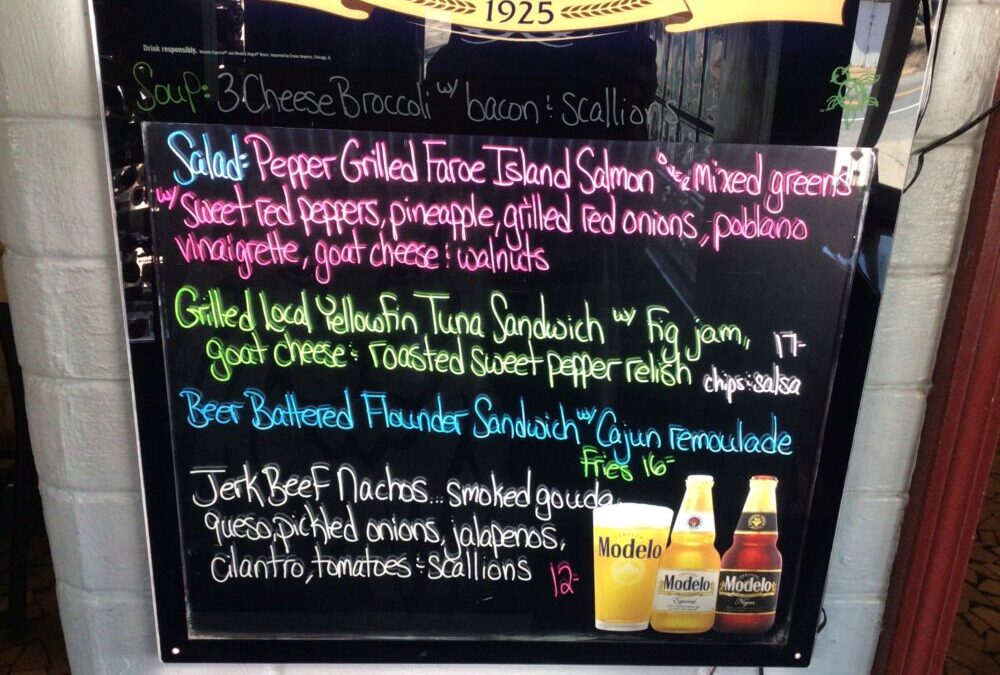 1925
Drink responsibly.
Soup: 3 Cheese Broccoli w/ bacon & scallions
Salad: Pepper Grilled Faroe Island Salmon over mixed greens
w/ sweet red peppers, pineapple, grilled red onions, poblano
vinaigrette, goat cheese & walnuts
Grilled Local Yellowfin Tuna Sandwich w/ Fig jam, 17-
goat cheese & roasted sweet pepper relish chips & salsa
Beer Battered Flounder Sandwich w/ Cajun remoulade
Fries 16-
Jerk Beef Nachos... smoked gouda
queso, pickled onions, jalapenos,
cilantro, tomatoes & scallions 12-
Modelo
Modelo
Especial
Modelo
Negra